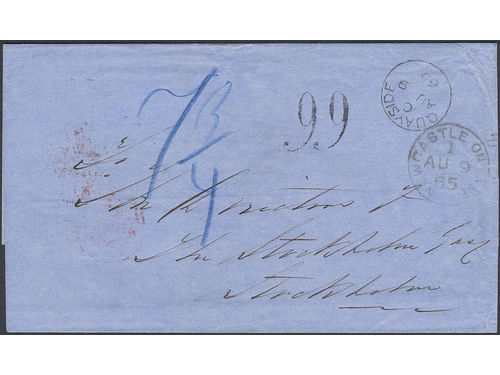 7 3/4
99
QUAYSIDE
AU 9
65
NEWCASTLE ON TYNE
1
AU 9
65
The Directors of
The Stockholm Gas
Stockholm